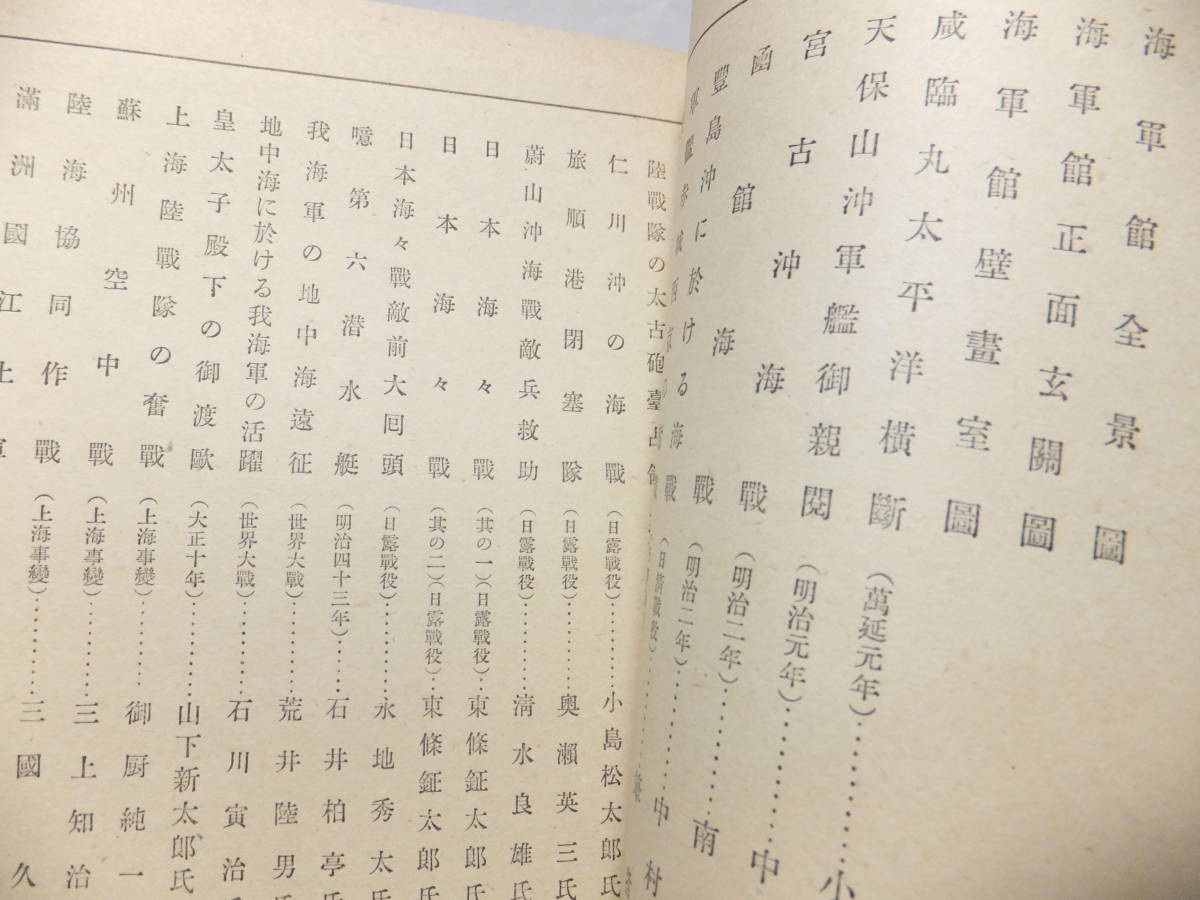 海軍館全景圖
海軍館正面玄關圖
海軍館壁畫室圖
咸臨丸太平洋横斷（萬延元年）…………小
天保山沖軍艦御親閲（明治元年）…………中
宮古沖海戰（明治二年）…………南
函館海戰（明治二年）…………中村
豐島沖に於ける海戰（日淸戰役）
軍艦赤城西
陸戰隊の太古砲臺占領
仁川沖の海戰（日露戰役）………小島松太郎氏
旅順港閉塞隊（日露戰役）………奥瀬英三氏
蔚山沖海戰敵兵救助（日露戰役）………淸水良雄氏
日本海々戰（其の一）（日露戰役）‥東條鉦太郎氏
日本海々戰（其の二）（日露戰役）‥東條鉦太郎氏
日本海々戰敵前大囘頭（日露戰役）………永地秀太氏
噫第六潜水艇（明治四十三年）……石井柏亭氏
我海軍の地中海遠征（世界大戰）………荒井陸男氏
地中海に於ける我海軍の活躍（世界大戰）………石川寅治氏
皇太子殿下の御渡歐（大正十年）………山下新太郎氏
上海陸戰隊の奮戰（上海事變）………御厨純一
蘇州空中戰（上海事變）………三上知治
陸海協同作戰（上海事變）………三國久
滿洲國江上軍